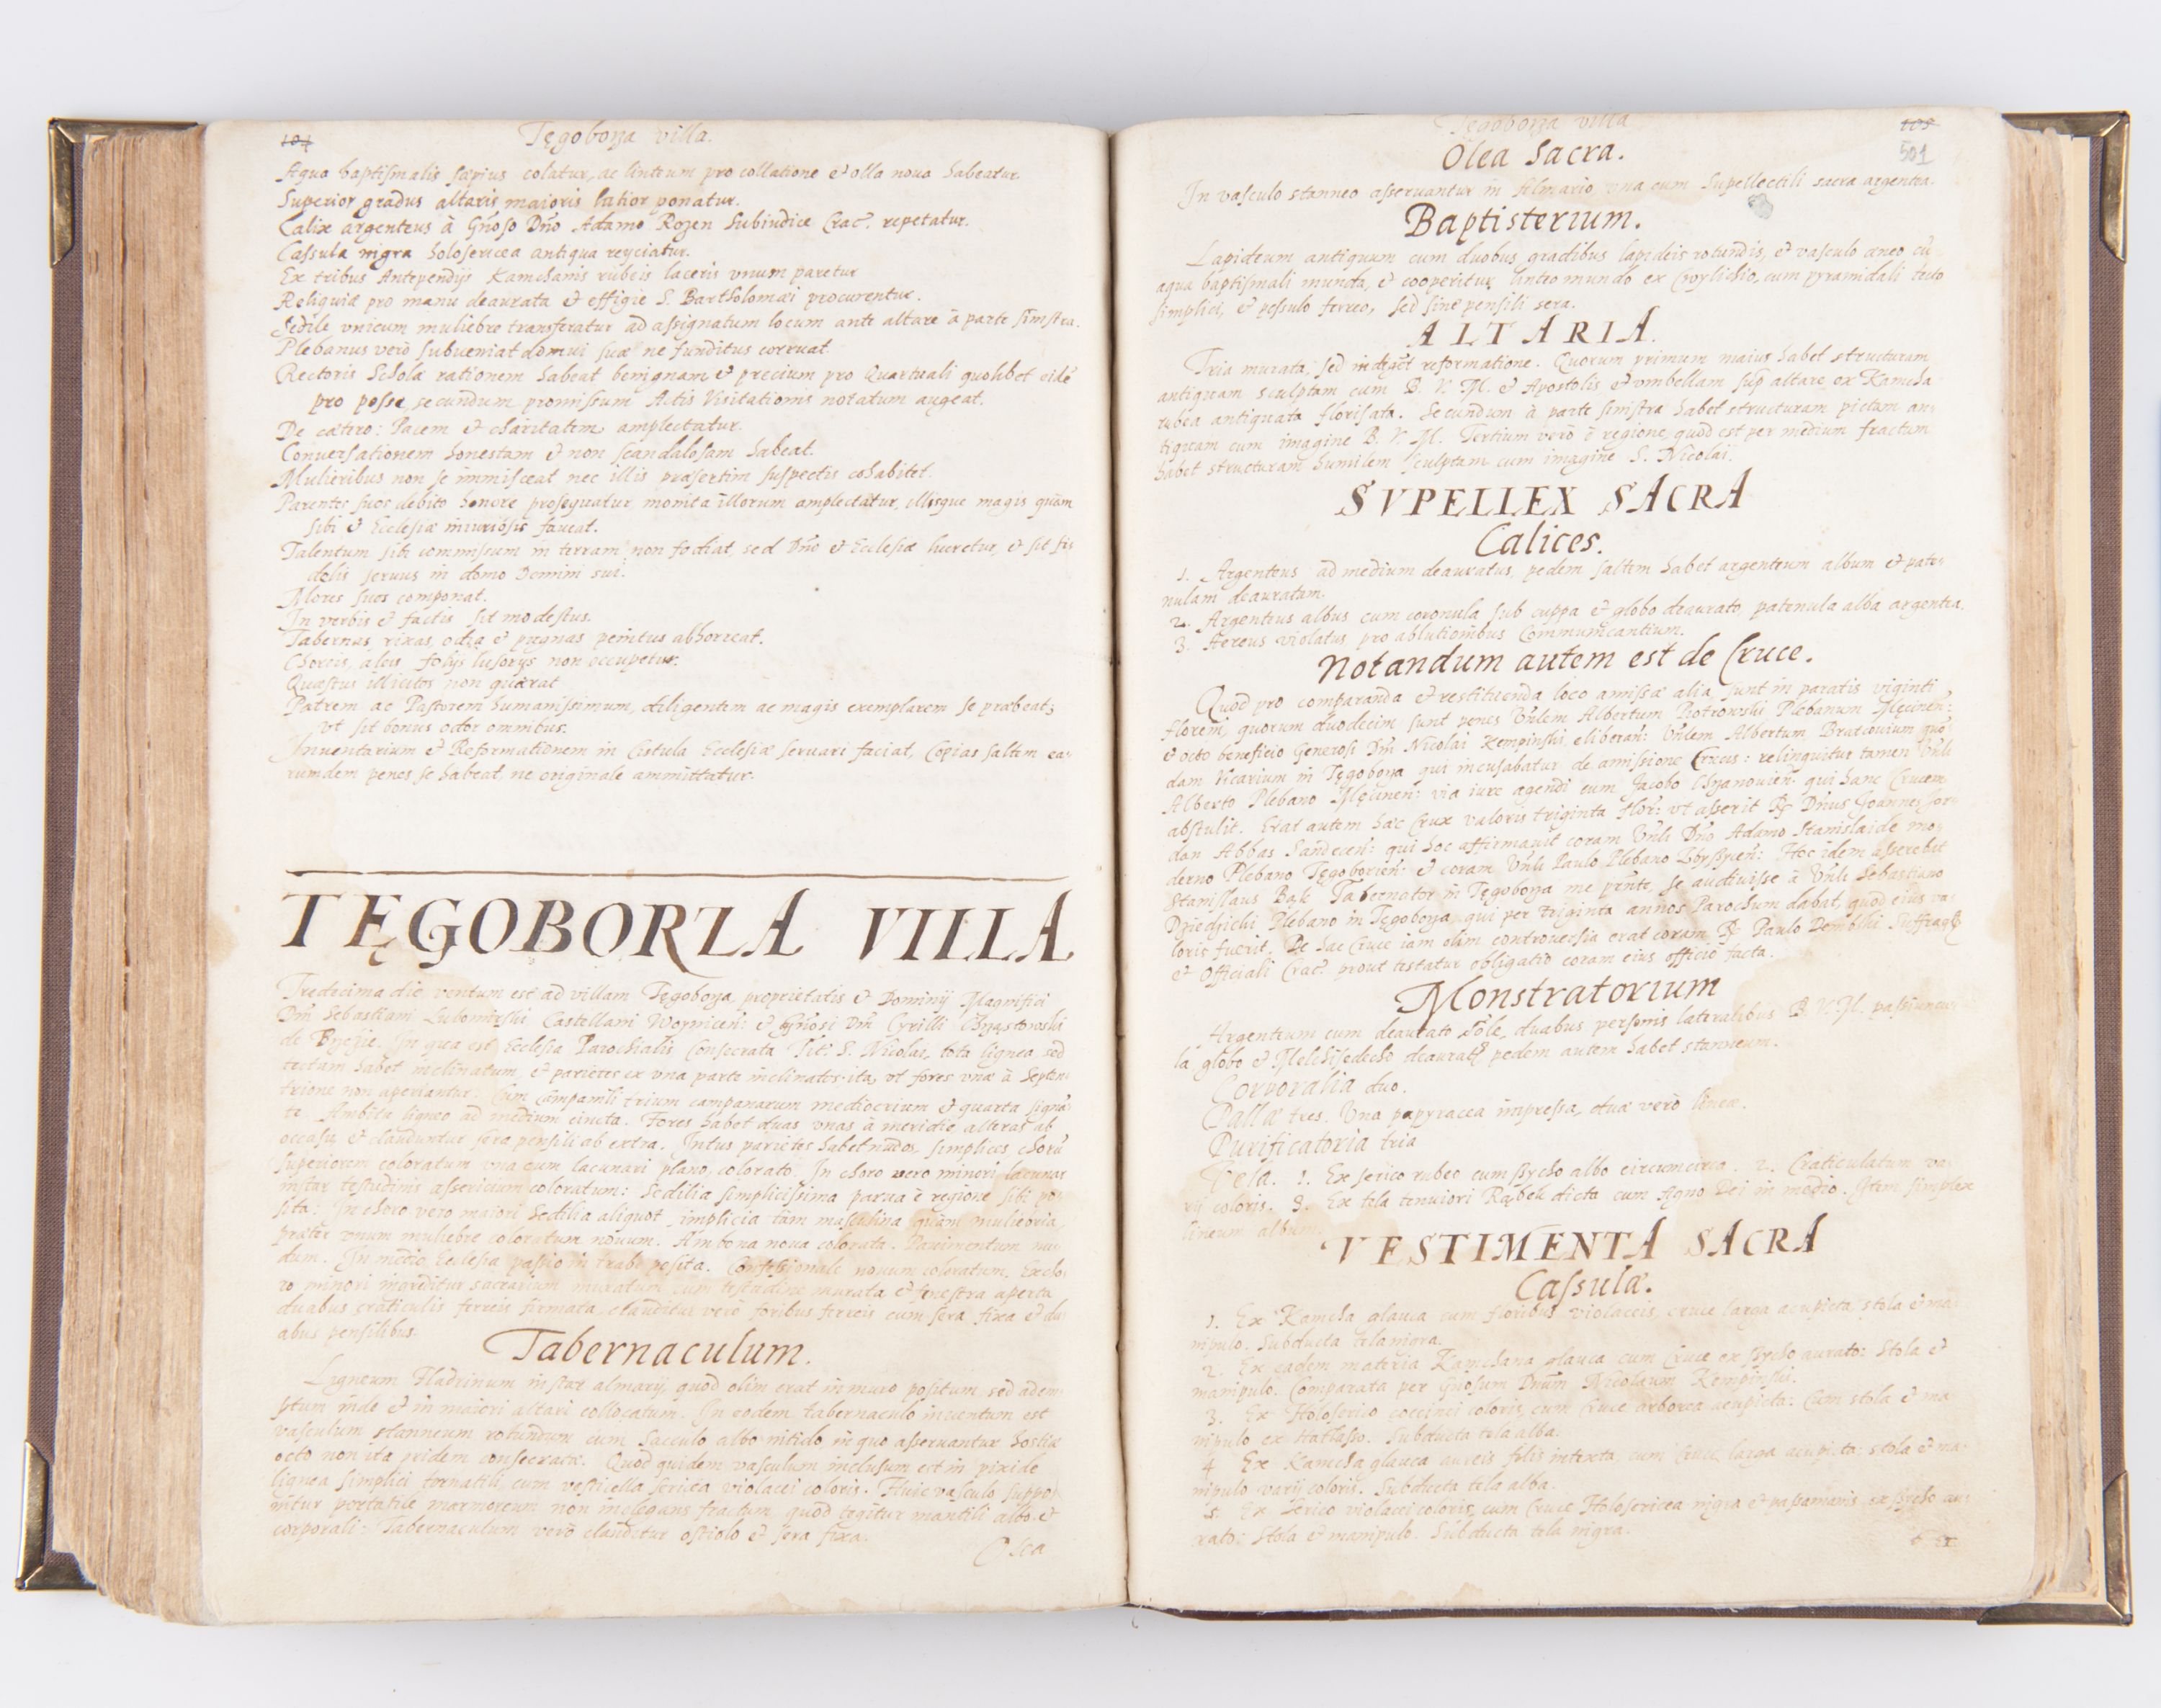 104
Tęgoborza villa.
Aqua baptismalis sæpius colatur, ac linteum pro collatione et olla noua habeatur.
Superior gradus altaris maioris latior ponatur.
Calix argenteus à Gnoso Dno Adamo Rozen Subiudice Crac. repetatur.
Cassula nigra holosericea antiqua reyciatur.
Ex tribus Antependys Kamchanis rubeis laceris vnum paretur
Reliquiæ pro manu deaurata et effigie S. Bartholomæi procurentur.
Sedile vnicum muliebre transferatur ad assignatum locum ante altare à parte sinistra.
Plebanus verò subueniat domui suæ ne funditus corruat.
Rectoris Scholæ rationem habeat benignam et precium pro Quartuali quolibet eidē
pro posse, secundum promissum Actis Visitationis notatum augeat.
De cætero: Pacem et charitatem amplectatur.
Conuersationem honestam et non scandalosam habeat.
Mulieribus non se immisceat nec illis præsertim suspectis cohabitet.
Parentes suos debito honore prosequatur monita illorum amplectatur, illisque magis quàm
sibi et Ecclesiæ iniuriosis faueat.
Talentum sibi commissum in terram non fodiat, sed Dno et Ecclesiæ lucretur, et sit fi-
delis seruus in domo Domini sui.
Mores suos componat.
In verbis et factis sit modestus.
Tabernas, rixas, odia et pugnas penitus abhorreat.
Choreis, aleis folys lusorys non occupetur.
Quæstus illicitos non quærat
Patrem ac Pastorem humanissimum, diligentem ac magis exemplarem se præbeat;
vt sit bonus odor omnibus.
Inuentarium et Reformationem in Cistula Ecclesiæ seruari faciat, Copias saltem ea-
rumdem penes se habeat, ne originale ammittatur.
TĘGOBORZA VILLA
Tredecima die ventum est ad villam Tęgoborza, proprietatis et Dominij Magnifici
Dni Sebastiani Lubomirski Castellani Woynicen: et Gnosi Dni Cyrilli Chrząstowski
de Brzezie. In qua est Ecclesia Parochialis Consecrata Tit: S. Nicolai, tota lignea, sed
tectum habet inclinatum, et parietes ex vna parte inclinatos ita, vt fores vnæ à Septen-
trione non aperiantur. Cum Campanili trium campanarum mediocrium et quarta signa-
te. Ambitu ligneo ad medium cincta. Fores habet duas vnas à meridie alteras ab
occasu, et clauduntur sera pensili ab extra. Intus parietes habet nudos, simplices, chorū
superiorem coloratum vna cum lacunari plano, colorato. In choro vero minori lacunar
instar testudinis assericium coloratum: Sedilia simplicissima parua è regione sibi po-
sita: In choro vero maiori Sedilia aliquot simplicia tàm masculina quàm muliebria,
præter vnum muliebre coloratum nouum. Ambona noua colorata. Pauimentum nu-
dum. In medio Ecclesiæ passio in trabe posita. Confessionale nouum coloratum. Ex cho-
ro minori ingreditur sacrarium muratum cum testudine murata et fenestra aperta
duabus craticulis ferreis firmata, clauditur verò foribus ferreis cum sera fixa et du-
abus pensilibus.
Tabernaculum.
Ligneum Fladrinum instar almarij, quod olim erat in muro positum, sed adem-
ptum inde et in maiori altari collocatum. In eodem tabernaculo inuentum est
vasculum stanneum rotundum cum Sacculo albo nitido in quo asseruantur hostiæ
octo non ita pridem consecratæ. Quod quidem vasculum inclusum est in pixide
lignea simplici tornatili, cum vesticella sericea violacei coloris. Huic vasculo suppo-
nitur portatile marmoreum non inelegans fractum quod tegitur mantili albo et
corporali: Tabernaculum verò clauditur ostiolo et sera fixa.
Olea
Tęgoborza villa
105
501
Olea Sacra.
In vasculo stanneo asseruantur in Almario vna cum Supellectili sacra argentea.
Baptisterium.
Lapideum antiquum cum duobus gradibus lapideis rotundis, et vasculo æneo cū
aqua baptismali munda, et cooperitur linteo mundo ex Czoylichio, cum pyramidali tecto
simplici, et pessulo ferreo, sed sine pensili sera.
ALTARIA.
Tria murata, sed indiget reformatione. Quorum primum maius habet structuram
antiquam sculptam cum B. V. M. et Apostolis et vmbellam sup altare ex Kamcha
rubea antiquata florisata. Secundum à parte sinistra habet structuram pictam an-
tiquam cum imagine B. V. M. Tertium verò è regione, quod est per medium fractum
habet structuram humilem sculptam cum imagine S. Nicolai.
SVPELLEX SACRA
Calices.
1. Argenteus ad medium deauratus, pedem saltem habet argenteum album et pate-
nulam deauratam.
2. Argenteus albus cum coronula sub cuppa et globo deaurato, patenula alba argentea.
3. Aereus violatus pro ablutionibus Communicantium.
Notandum autem est de Cruce.
Quod pro comparanda et restituenda loco amissæ alia, sunt in paratis viginti
floreni, quorum duodecim sunt penes Vnlem Albertum Piotrowski Plebanum Męcinen:
et octo beneficio Generosi Dni Nicolai Kempinski eliberan: Vnlem Albertum Bratiouium quō-
dam Vicarium in Tęgoborza qui incusabatur de amissione Crucis: relinquitur tamen Vnli
Alberto Plebano Męcinen: via iure agendi cum Jacobo Chrzanouien: qui hanc Crucem
abstulit. Erat autem hæc Crux valoris triginta flor: vt asserit R. Dnus Joannes Jor-
dan Abbas Sandecen: qui hoc affirmauit coram Vnli Dno Adamo Stanislaide mo-
derno Plebano Tęgoborien: et coram Vnli Paulo Plebano Zbyszycen: Hoc idem asserebat
Stanislaus Bąk Tabernator in Tęgoborza me pnte, se audiuisse à Vnli Sebastiano
Dziedzicki Plebano in Tęgoborza, qui per triginta annos Parochum dabat, quod eius va-
loris fuerit. De hac Cruce iam olim controuersia erat coram R. Paulo Dembski Suffrag.
et Officiali Crac. prout testatur obligatio coram eius officio facta.
Monstratorium
Argenteum cum deaurato Sole, duabus personis lateralibus B. V. M. passiuncu-
la globo et Melchisedecho deaurat. pedem autem habet stanneum.
Corporalia duo.
Pallæ tres. Vna papyracea impressa, duæ verò lineæ.
Purificatoria tria
Vela. 1. Ex serico rubeo cum szycho albo circumcirca. 2. Craticulatum va-
rij coloris. 3. Ex tela tenuiori Rąbek dicta cum Agno Dei in medio. Item simplex
lineum album.
VESTIMENTA SACRA
Cassulæ.
1. Ex Kamcha glauca cum floribus violaceis, cruce larga acupicta, stola et ma-
nipulo. Subducta tela nigra.
2. Ex eadem materia Kamchana glauca cum Cruce ex szycho aurato: Stola et
manipulo. Comparata per Gnosum Dnum Nicolaum Kempinski.
3. Ex Holoserico coccinei coloris, cum Cruce arborea acupicta: Cum stola et ma-
nipulo ex Hatlasso. Subducta tela alba.
4. Ex Kamcha glauca aureis filis intexta, cum Cruce larga acupicta: stola et ma-
nipulo varij coloris. Subducta tela alba.
5. Ex Serico violacei coloris, cum Cruce Holosericea nigra et passamanis ex szycho au-
rato: Stola et manipulo. Subducta tela nigra.
6. Ex